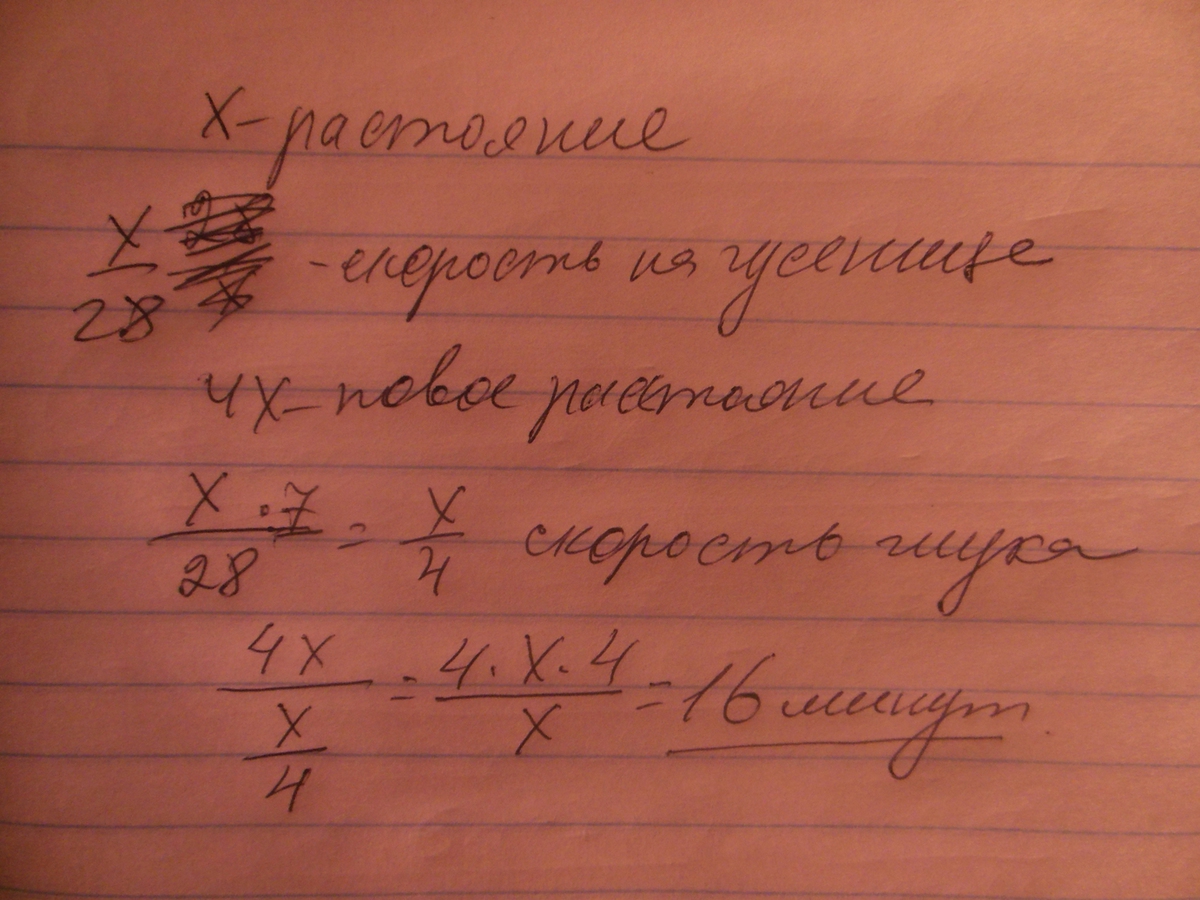 X - растояние
X/28 - скорость на гусенице
4X - новое растояние
X · 7/28 = X/4 скорость жука
4X/(X/4) = 4 · X · 4/X = 16 минут